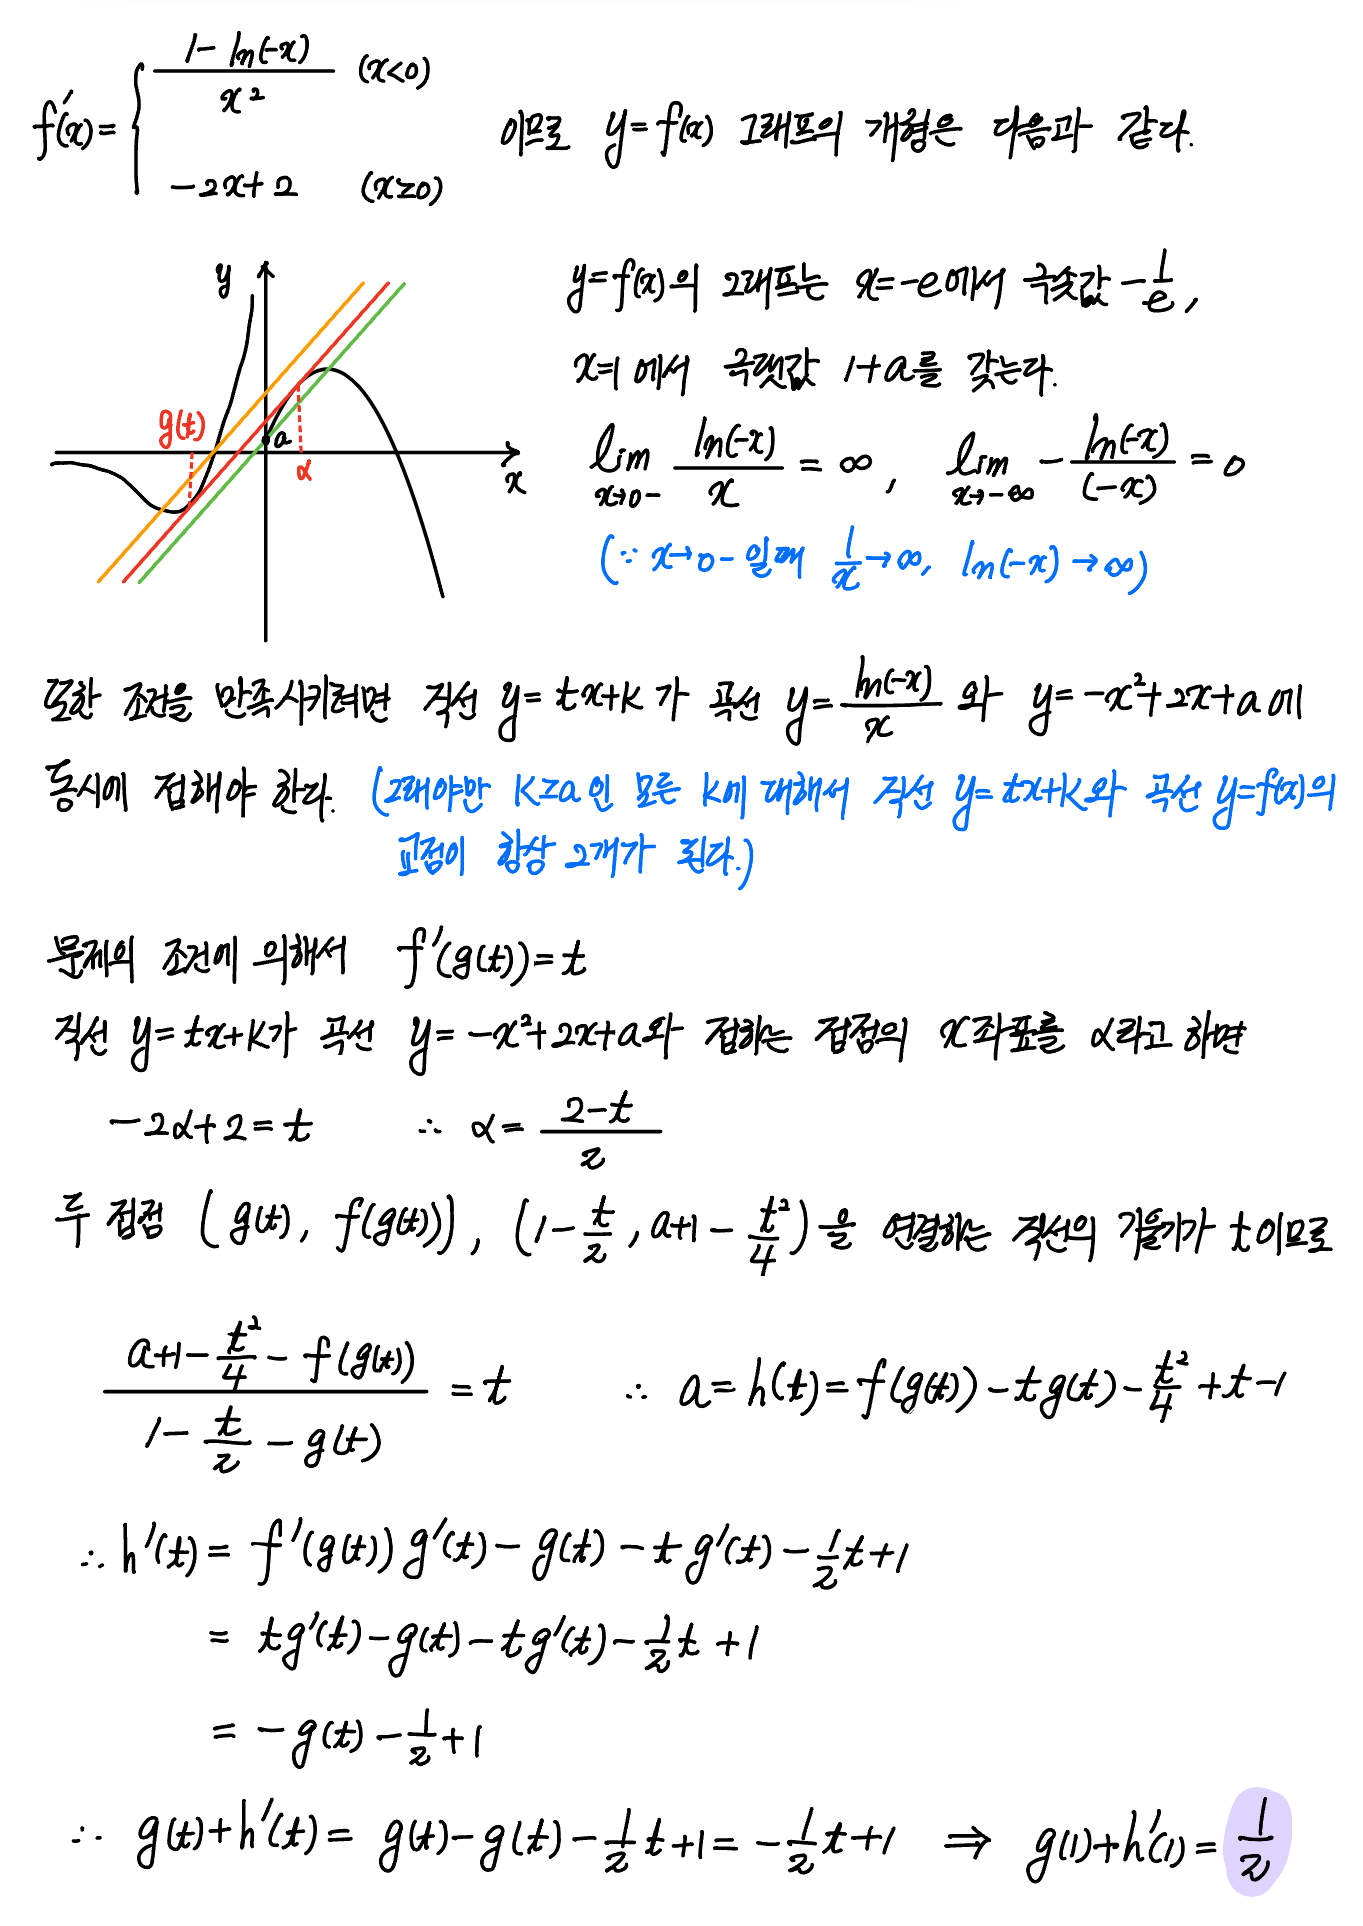 f'(x) = { (1 - ln(-x))/x² (x<0)
-2x+2 (x≥0)
이므로 y=f(x) 그래프의 개형은 다음과 같다.
y
x
g(t)
a
α
y=f(x)의 그래프는 x=-e에서 극솟값 -1/e,
x=1에서 극댓값 1+a를 갖는다.
lim_{x→0-} ln(-x)/x = ∞, lim_{x→-∞} - ln(-x)/(-x) = 0
(∵ x→0- 일때 1/x → ∞, ln(-x) → ∞)
또한 조건을 만족시키려면 직선 y=tx+k가 곡선 y=ln(-x)/x 와 y=-x²+2x+a에
동시에 접해야 한다. (그래야만 k≥a인 모든 k에 대해서 직선 y=tx+k와 곡선 y=f(x)의
교점이 항상 2개가 된다.)
문제의 조건에 의해서 f'(g(t))=t
직선 y=tx+k가 곡선 y=-x²+2x+a와 접하는 접점의 x좌표를 α라고 하면
-2α+2=t ∴ α=(2-t)/2
두 접점 (g(t), f(g(t))), (1-t/2, a+1-t²/4)을 연결하는 직선의 기울기가 t이므로
(a+1-t²/4-f(g(t)))/(1-t/2-g(t)) = t ∴ a=h(t)=f(g(t))-tg(t)-t²/4+t-1
∴ h'(t) = f'(g(t))g'(t)-g(t)-tg'(t)-1/2t+1
= tg'(t)-g(t)-tg'(t)-1/2t+1
= -g(t)-1/2+1
∴ g(t)+h'(t) = g(t)-g(t)-1/2t+1 = -1/2t+1 ⇒ g(1)+h'(1) = 1/2